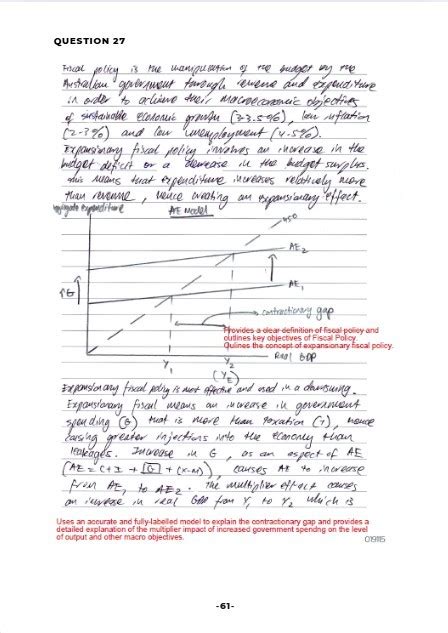 QUESTION 27
Fiscal policy is the manipulation of the budget by the
Australian government through revenue and expenditure
in order to achieve their macroeconomic objectives
of sustainable economic growth (3-3.5%), low inflation
(2-3%) and low unemployment (4.5%).
Expansionary fiscal policy involves an increase in the
budget deficit or a decrease in the budget surplus.
This means that expenditure increases relatively more
than revenue, hence creating an expansionary effect.
Aggregate expenditure
AE Model
45°
AE2
AE1
↑G
contractionary gap
Provides a clear definition of fiscal policy and
outlines key objectives of Fiscal Policy.
Oulines the concept of expansionary fiscal policy.
Real GDP
Y1
Y2
(YE)
Expansionary fiscal policy is most effective and used in a
Expansionary fiscal means an increase in government
spending (G) that is more than taxation (T), hence
causing greater injections into the economy than
leakages. Increase in G, as an aspect of AE
(AE = C + I + [G] + (X-M)), causes AE to increase
from AE1 to AE2. The multiplier effect causes
an increase in real GDP from Y1 to Y2 which is
Uses an accurate and fully-labelled model to explain the contractionary gap and provides a
detailed explanation of the multiplier impact of increased government spendng on the level
of output and other macro objectives.
019115
-61-